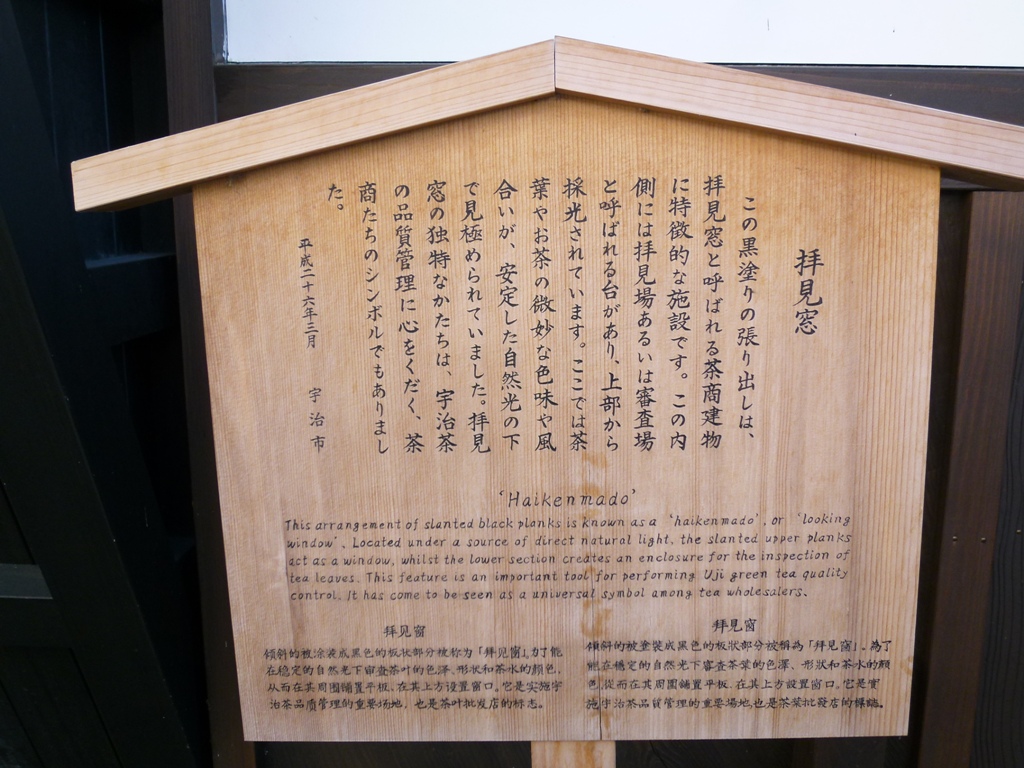 拝見窓
この黒塗りの張り出しは、
拝見窓と呼ばれる茶商建物
に特徴的な施設です。この内
側には拝見場あるいは審査場
と呼ばれる台があり、上部から
採光されています。ここでは茶
葉やお茶の微妙な色味や風
合いが、安定した自然光の下
で見極められていました。拝見
窓の独特なかたちは、宇治茶
の品質管理に心をくだく、茶
商たちのシンボルでもありまし
た。
平成二十六年三月 宇治市
‘Haikenmado’
This arrangement of slanted black planks is known as a ‘haikenmado’, or ‘looking
window’. Located under a source of direct natural light, the slanted upper planks
act as a window, whilst the lower section creates an enclosure for the inspection of
tea leaves. This feature is an important tool for performing Uji green tea quality
control. It has come to be seen as a universal symbol among tea wholesalers.
拜见窗
倾斜的被涂装成黑色的板状部分被称为「拜见窗」。为了能
在稳定的自然光下审查茶叶的色泽、形状和茶水的颜色,
从而在其周围铺置平板,在其上方设置窗口。它是实施宇
治茶品质管理的重要场地,也是茶叶批发店的标志。
拜見窗
傾斜的被塗裝成黑色的板狀部分被稱為「拜見窗」。為了
能在穩定的自然光下審查茶葉的色澤、形狀和茶水的顏
色,從而在其周圍鋪置平板,在其上方設置窗口。它是實
施宇治茶品質管理的重要場地,也是茶葉批發店的標誌。